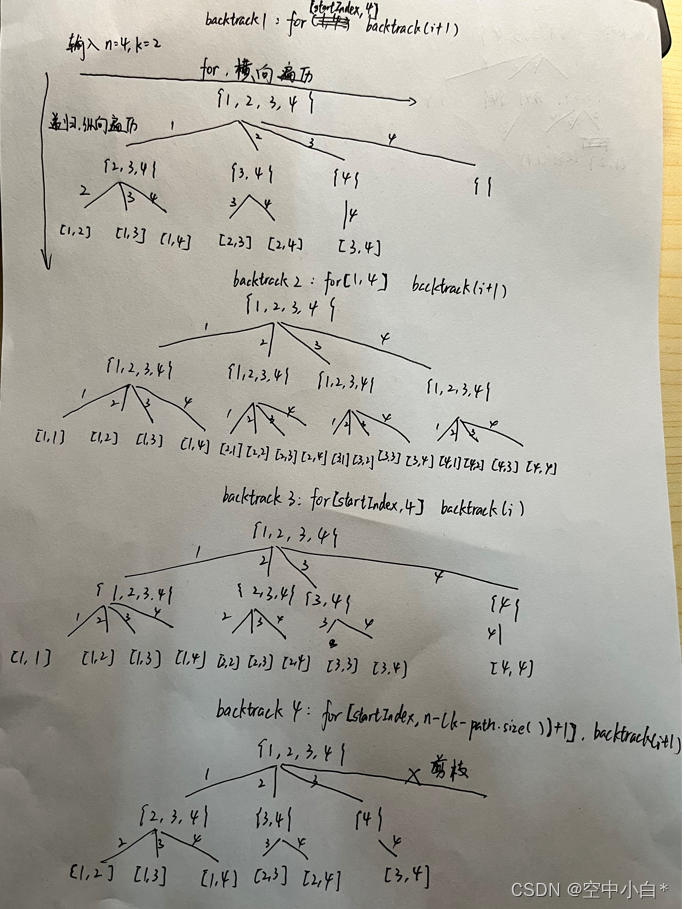 backtrack 1 : for [startIndex, 4] backtrack(i+1)
输入 n=4, k=2
for, 横向遍历
{1, 2, 3, 4}
递归, 纵向遍历
1 2 3 4
{2, 3, 4} {3, 4} {4} { }
2 3 4 3 4 4
[1,2] [1,3] [1,4] [2,3] [2,4] [3,4]
backtrack 2 : for [1, 4] backtrack(i+1)
{1, 2, 3, 4}
1 2 3 4
{1, 2, 3, 4} {1, 2, 3, 4} {1, 2, 3, 4} {1, 2, 3, 4}
1 2 3 4 1 2 3 4 1 2 3 4 1 2 3 4
[1,1] [1,2] [1,3] [1,4] [2,1] [2,2] [2,3] [2,4] [3,1] [3,2] [3,3] [3,4] [4,1] [4,2] [4,3] [4,4]
backtrack 3 : for [startIndex, 4] backtrack(i)
{1, 2, 3, 4}
1 2 3 4
{1, 2, 3, 4} {2, 3, 4} {3, 4} {4}
1 2 3 4 2 3 4 3 4 4
[1, 1] [1,2] [1,3] [1,4] [2,2] [2,3] [2,4] [3,3] [3,4] [4,4]
backtrack 4 : for [startIndex, n-(k-path.size())+1], backtrack(i+1)
{1, 2, 3, 4}
1 2 3 × 剪枝
{2, 3, 4} {3, 4} {4}
2 3 4 3 4 4
[1,2] [1,3] [1,4] [2,3] [2,4] [3,4]
CSDN @空中小白*